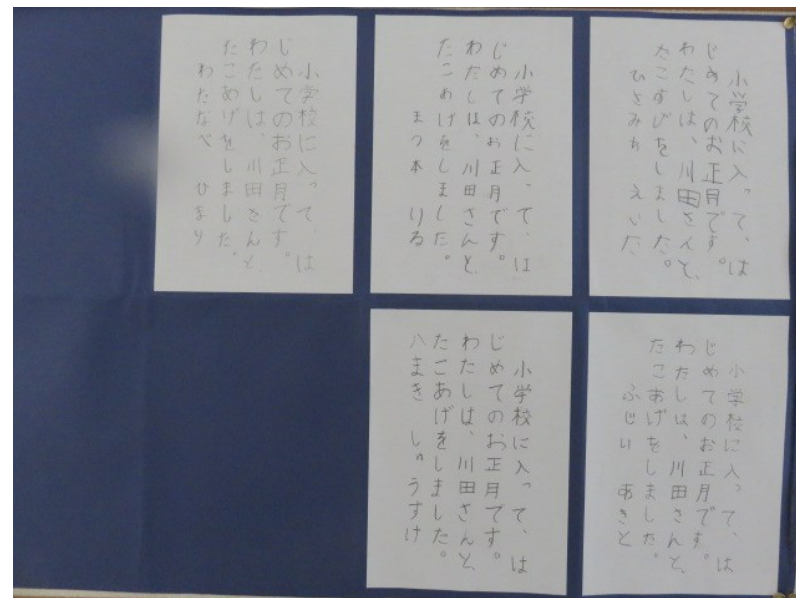 小学校に入って、は
じめてのお正月です。
わたしは、川田さんと、
たこあげをしました。
ひさみち えいた
小学校に入って、は
じめてのお正月です。
わたしは、川田さんと、
たこあげをしました。
まつ本 りる
小学校に入って、は
じめてのお正月です。
わたしは、川田さんと、
たこあげをしました。
わたなべ ひまり
小学校に入って、は
じめてのお正月です。
わたしは、川田さんと、
たこあげをしました。
ふじい あきと
小学校に入って、は
じめてのお正月です。
わたしは、川田さんと、
たこあげをしました。
八まき しゅうすけ